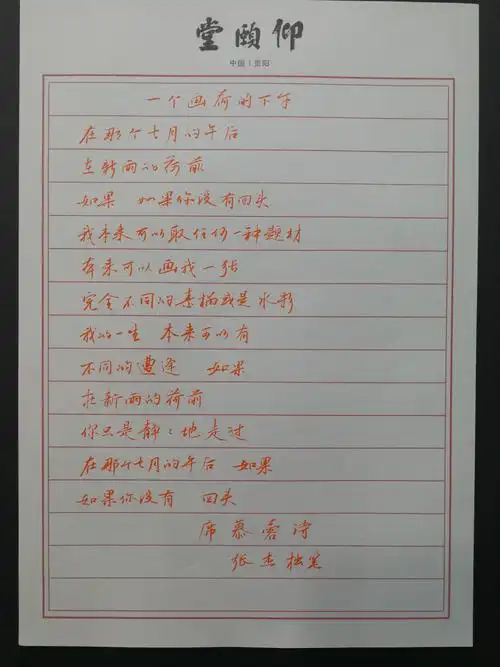 堂颐仰
中国 | 贵阳
一个画荷的下午
在那个七月的午后
在新雨的荷前
如果 如果你没有回头
我本来可以取任何一种题材
本来可以画成一张
完全不同的素描或是水彩
我的一生 本来可以有
不同的遭逢 如果
在新雨的荷前
你只是静:地走过
在那个七月的午后 如果
如果你没有 回头
席慕蓉诗
张杰拙笔